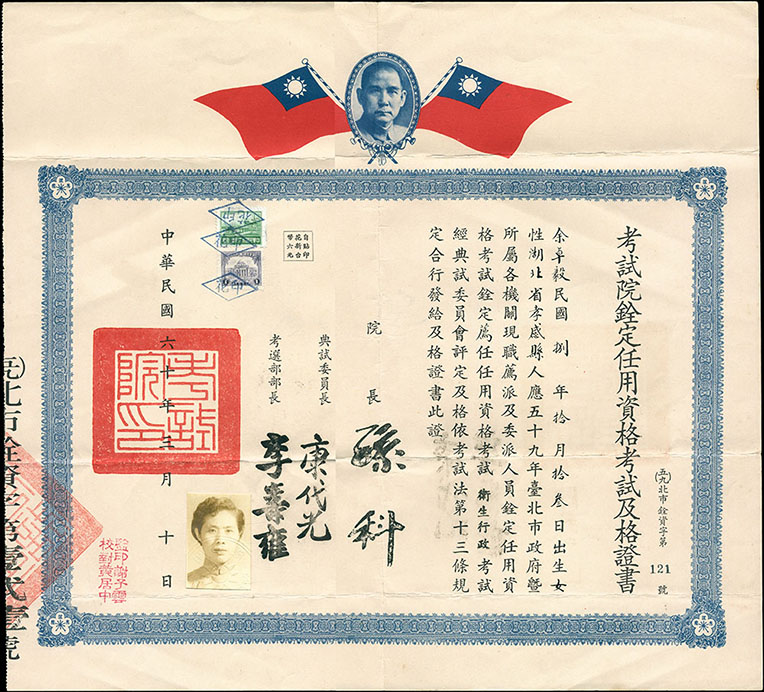 考試院銓定任用資格考試及格證書
(五九)北市銓資字第 121 號
余卓毅民國捌年拾月拾叁日出生女
性湖北省孝感縣人應五十九年臺北市政府暨
所屬各機關現職薦派及委派人員銓定任用資
格考試銓定薦任任用資格考試衛生行政考試
經典試委員會評定及格依考試法第十三條規
定合行發給及格證書此證
院長 孫科
典試委員長
考選部部長
李壽雍
自貼印
花新台
幣六元
印花
印花
考試院印
中華民國六十年三月十日
監印謝子雲
校對黃居中
北市銓資字第壹弍壹號